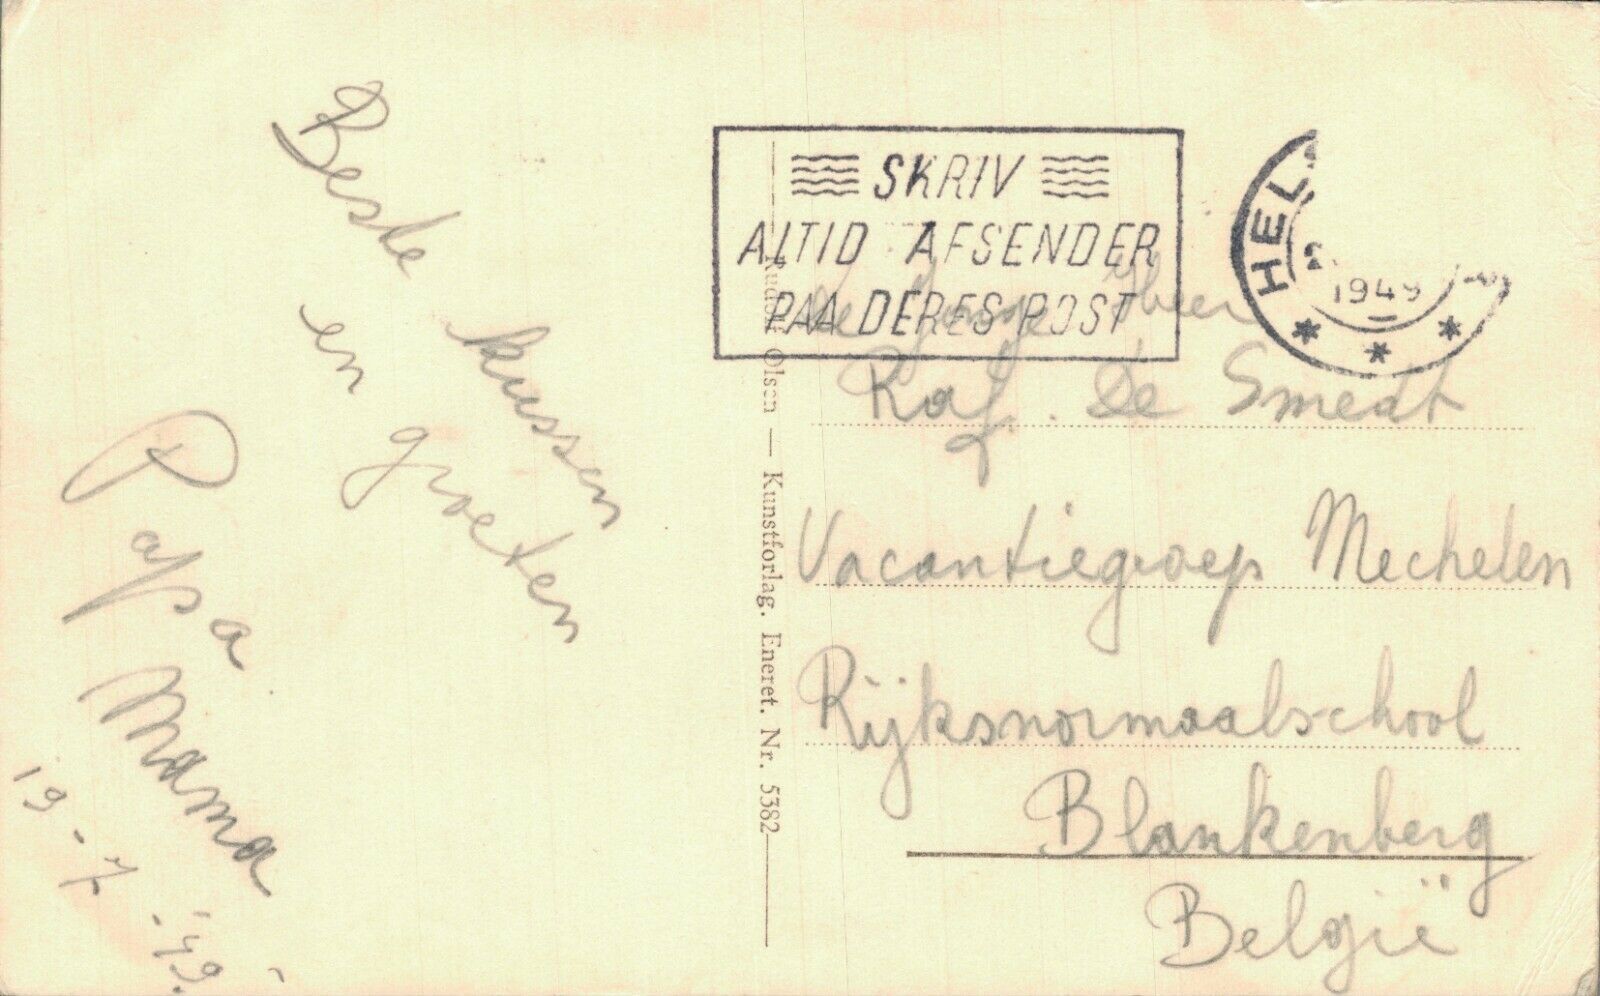 Beste kussen
en groeten
Papa
Mama
19-7-'49.
SKRIV
ALTID AFSENDER
PAA DERES POST
HEL
1949
Rudolf Olsen — Kunstforlag. Eneret. Nr. 5382
De Jonge Heer
Raf. De Smedt
Vacantiegroep Mechelen
Rijksnormaalschool
Blankenberg
België